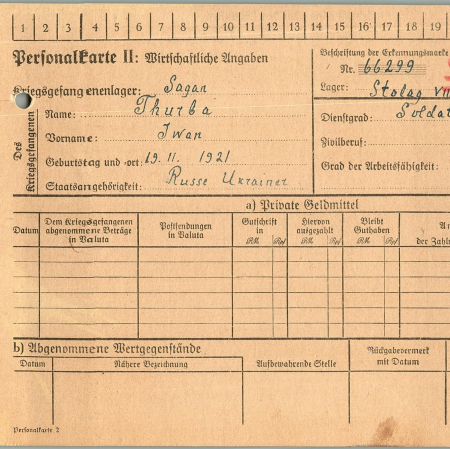 1 2 3 4 5 6 7 8 9 10 11 12 13 14 15 16 17 18 19
Personalkarte II: Wirtschaftliche Angaben
Beschriftung der Erkennungsmarke
Nr. 66299
Kriegsgefangenenlager: Sagan
Lager: Stalag VIII
Des Kriegsgefangenen
Name: Thurba
Vorname: Iwan
Geburtstag und -ort: 19. 11. 1921
Staatsangehörigkeit: Russe Ukrainer
Dienstgrad: Soldat
Zivilberuf:
Grad der Arbeitsfähigkeit:
a) Private Geldmittel
Datum
Dem Kriegsgefangenen abgenommene Beträge in Valuta
Postsendungen in Valuta
Gutschrift in
RM Rpf
Hiervon ausgezahlt
RM Rpf
Bleibt Guthaben
RM Rpf
der Zahl
b) Abgenommene Wertgegenstände
Datum
Nähere Bezeichnung
Aufbewahrende Stelle
Rückgabevermerk mit Datum
Personalkarte 2